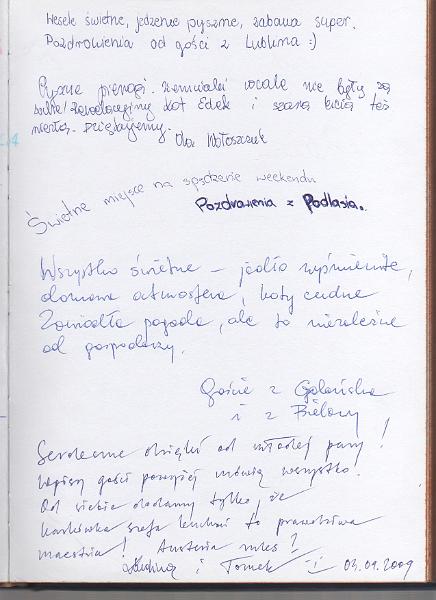 Wesele świetne, jedzenie pyszne, zabawa super.
Pozdrowienia od gości z Lublina :)
Pyszne pierogi. Ziemniaki wcale nie były za
Rewelacyjny kot Edek i szara kicia też
niezła. Dziękujemy.
Ola Wołoszczuk
Świetne miejsce na spędzenie weekendu
Pozdrowienia z Podlasia.
Wszystko świetne – jedło wyśmienite,
domowa atmosfera, koty cudne
Zawiodła pogoda, ale to niezależne
od gospodarzy.
Goście z Gdańska
i z
Serdeczne dzięki od młodej pary!
Wpisy gości powyżej mówią wszystko!
Od siebie dodamy tylko, że
karkówka szefa kuchni to prawdziwa
maestria! Austeria rules!
i Tomek 03.01.2009